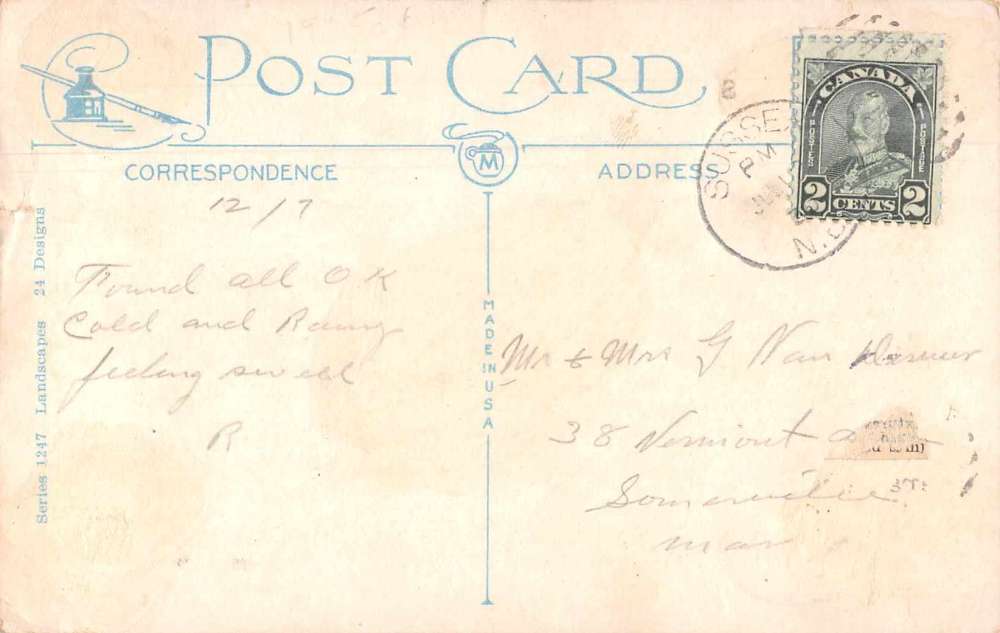 POST CARD
CORRESPONDENCE
ADDRESS
M
CANADA
POSTES
POSTAGE
2 CENTS 2
SUSSE
PM
JUN
N.B
12/7
Found all OK
Cold and Rainy
feeling swell
R
Mr & Mrs G Van
38 Vermont
Somerville
Mass
MADE IN USA
Series 1247 Landscapes 24 Designs